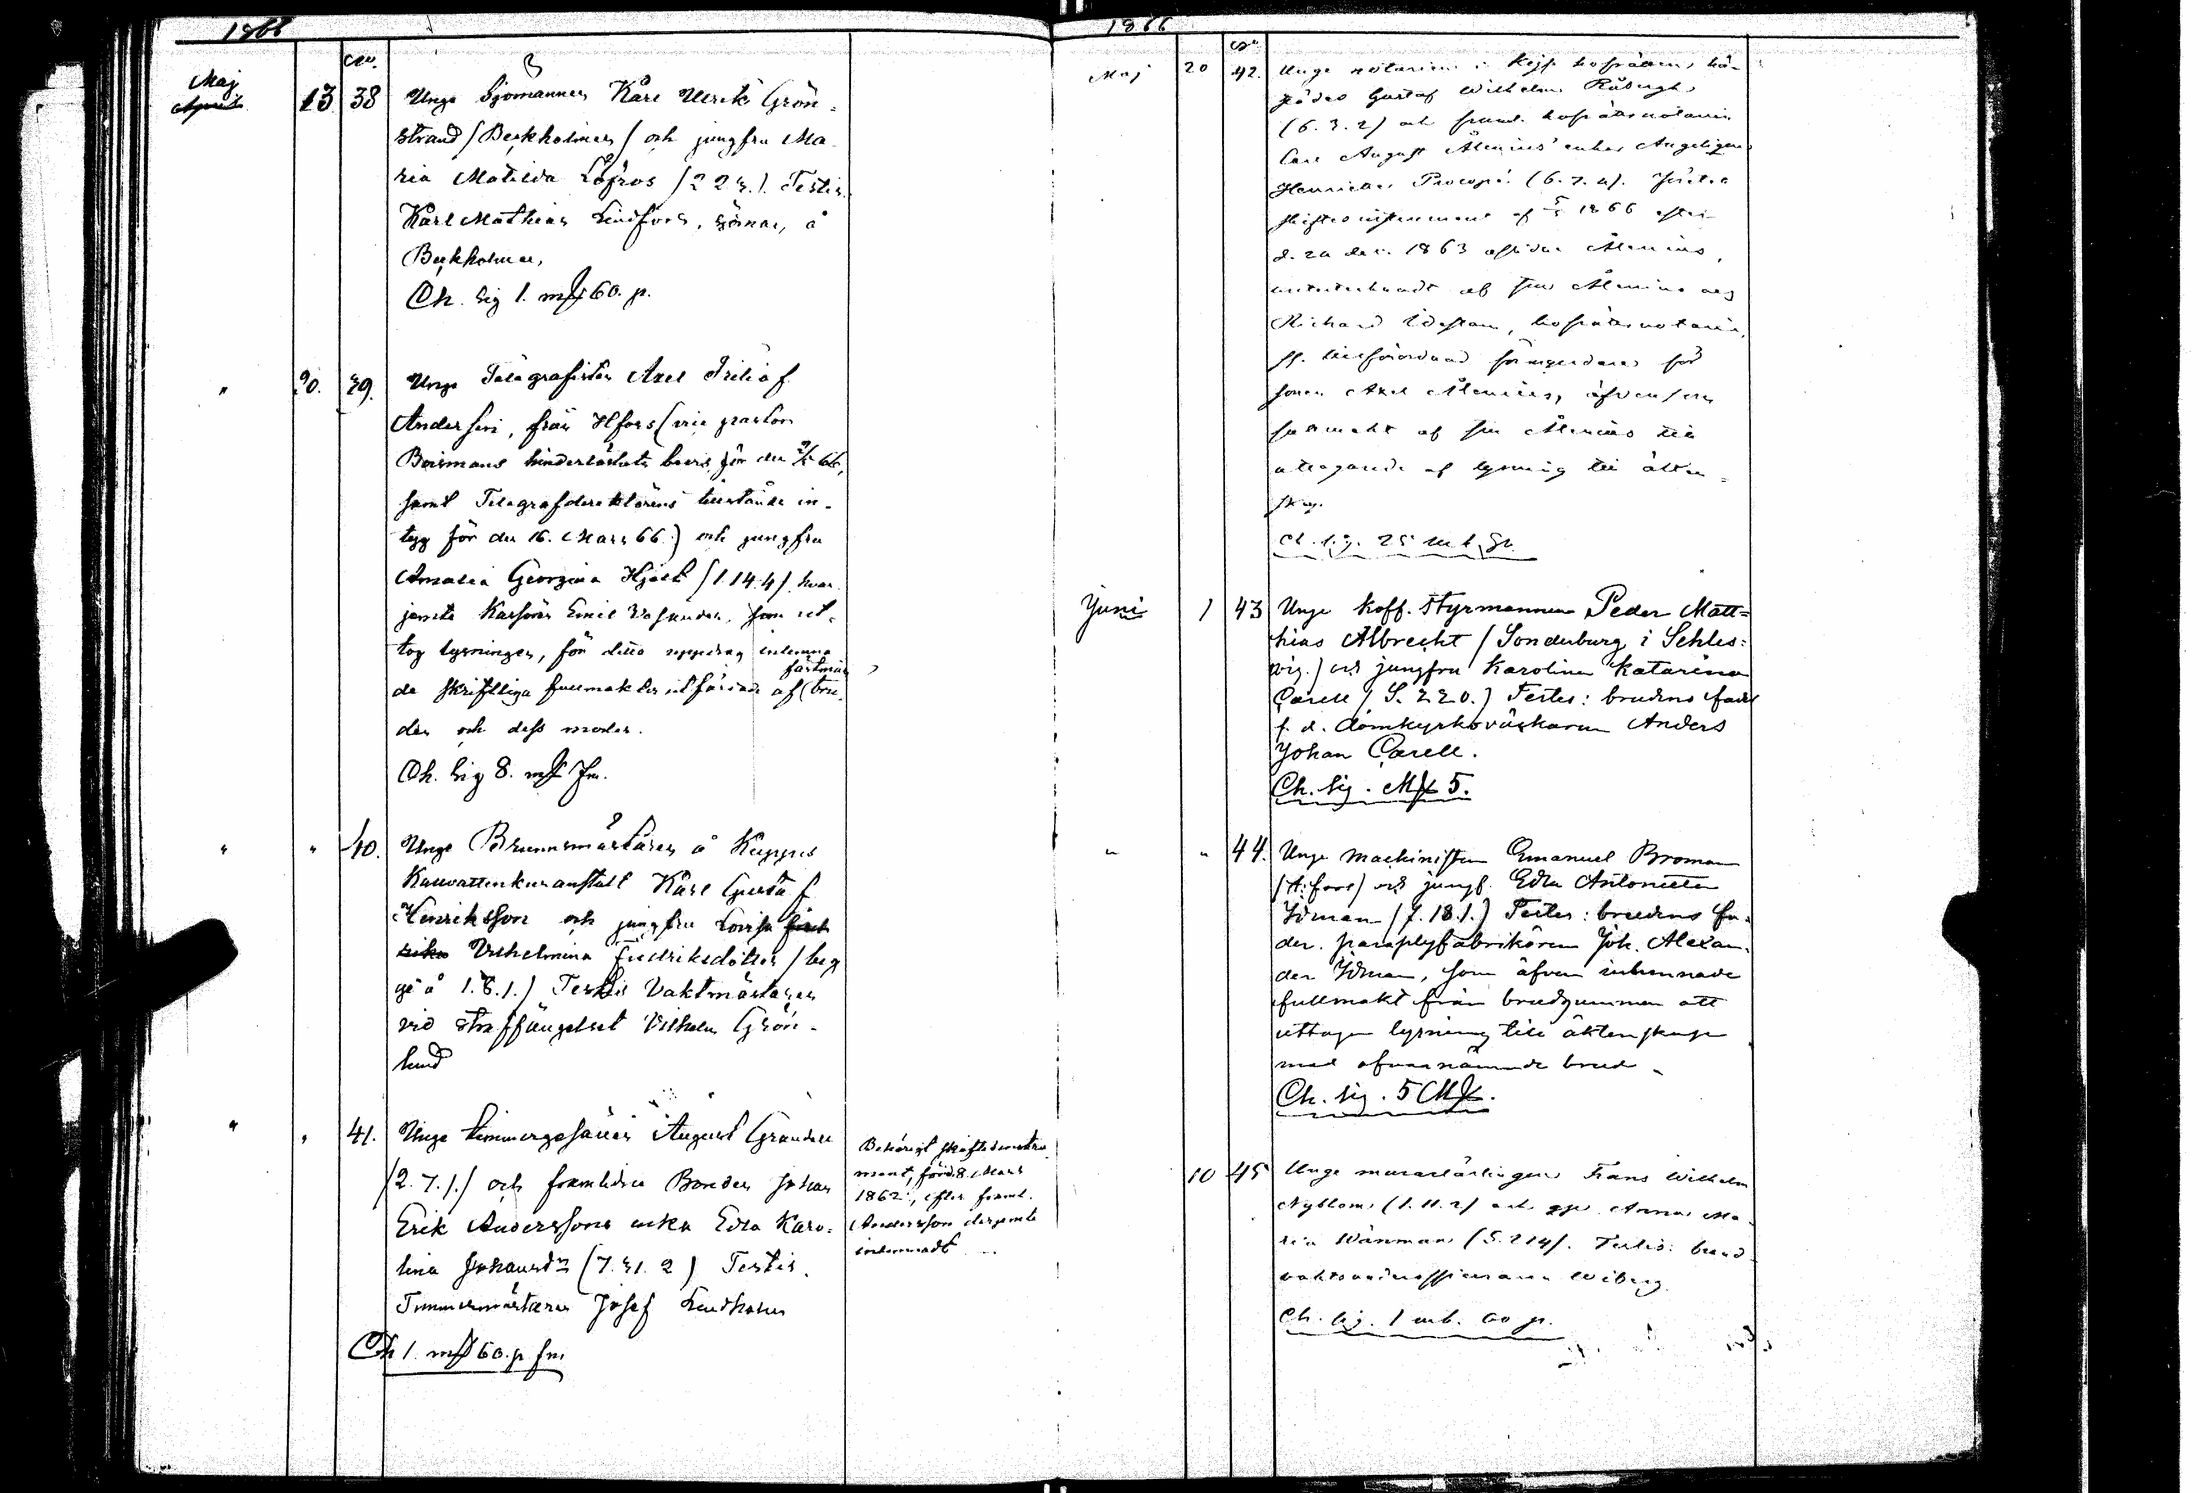 1866
No.
Maj
April 13 38 Unge Sjömannen Karl Ulrik Grön-
strand (Beckholmen) och jungfru Ma-
ria Matilda Löfros (2 2 3.). Testis
Karl Mathias Lindfors, å
Beckholmen,
Ch. sig 1. mk 60. p.
" 20. 39. Unge Telegrafisten Axel Fritiof
Andersin, från Hfors (vie pastor
hinderlöshets bevis för den 66,
samt Telegrafdirektörens in-
tyg för den 16. Mars 66.) och jungfru
Amalia Georgina Hjelt (1.14.4). hvar-
jemte Emil som ut-
tog lysningen, för detta uppdrag inlemna
fästmön
de skriftliga fullmakter utfärdade af bru-
den och dess moder.
Ch. sig 8. mk fm.
" " 40. Unge Brunnsmästaren å Kuppis
Kallvattenkuranstalt Karl Gusta f
Henriksson och jungfru Lovisa
Vilhelmina Fredriksdotter / beg
ge å 1.6.1.) Testis Vaktmästaren
vid straffängelset Vilhelm Grön-
lund
" " 41. Unge timmergesällen August Grandell
(2.7.1.) och framlidne Bonden Johan
Erik Anderssons enka Edla Karo-
lina (7.31.2) Testis.
Timmermästaren Josef Lindholm
Ch 1. mk 60. p fm
Behörigt skiftesinstru
ment, för d. 8 Mars
1862, efter framl.
Andersson derjemte
inlemnadt
1866
No.
Maj 20 42. Unge notarien i Kejs. hofrätten, hä-
radsh. Gustaf Wilhelm
(6.3.2) och framl. hofrättsnotarien
Carl August Alenius' enka Angelique
Henriette Procopé (6.7.4).
skiftesinstrument af 1866 efter
d. 1863 aflidne Alenius,
af fru Alenius och
Richard Idestam, hofrättsnotarie,
förmyndare för
sonen Axel Alenius, äfvensom
fullmakt af fru Alenius till
uttagande af lysning till äkten-
skap.
Ch. sig. 25 mk.
Juni 1 43 Unge koff. styrmannen Peder Matt=
hias Albrecht (Sonderburg i Schles=
wig.) och jungfru Karolina Katarina
Carell (S. 2 2 0.) Testes: brudens fader
f. d. domkyrkoväktaren Anders
Johan Carell.
Ch. sig. Mk 5.
" " 44. Unge machinisten Emanuel Broman
(H:fors) och jungf. Edla Antonietta
Idman (7.18.1.) Testes: brudens fa-
der, paraplyfabrikören Joh. Alexan-
der Idman, som äfven inlemnade
fullmakt från brudgummen att
uttaga lysning till äktenskap
med ofvannämnde brud.
Ch. sig. 5 Mk.
10 45 Unge murarlärlingen Frans Wilhelm
Nyblom (1.11.2) och Anna Ma-
ria Wänman (5.214). Testis: brand-
vaktsunderofficeraren Wiberg.
Ch. sig. 1 mk. 60 p.